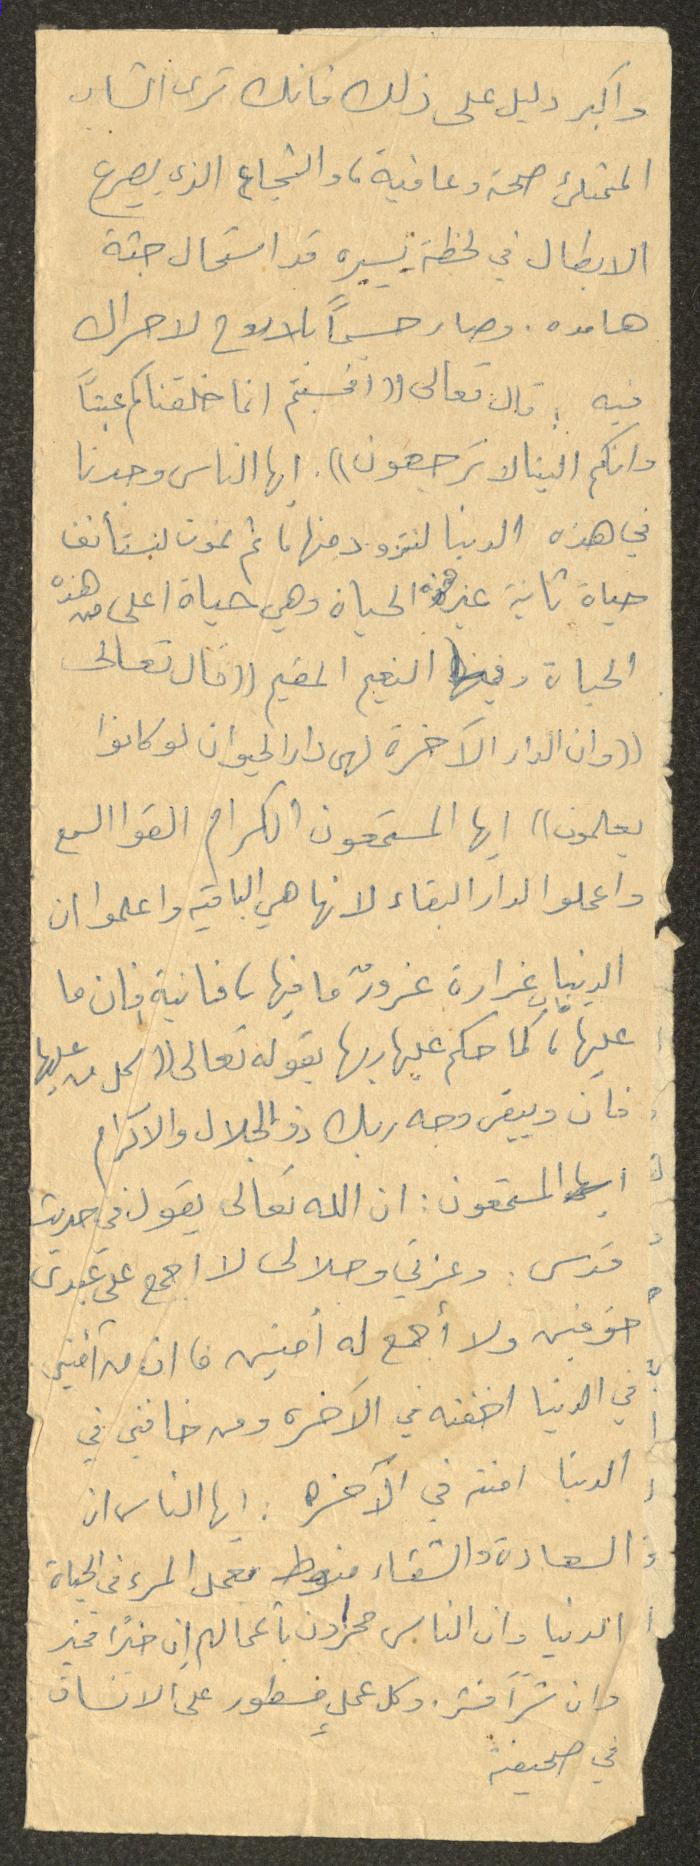 واكبر دليل على ذلك فانك ترى الشاب
الممتلئ صحة وعافية، والشجاع الذي يصرع
الابطال في لحظة يسيره قد استحال جثة
هامده. وصار جسماً بلا روح لا حراك
فيه ؛ قال تعالى ((افحسبتم انما خلقناكم عبثاً
وانكم الينا لا ترجعون)). ايها الناس وجدنا
في هذه الدنيا لنتزود منها، ثم نموت لنستأنف
حياة ثانية غير هذه الحياة وهي حياة اعلى من هذه
الحياة وفيها النعيم المقيم ((قال تعالى
((وان الدار الآخرة لهي دار الحيوان لو كانوا
يعلمون)) ايها المستمعون الكرام القوا السمع
واعملوا لدار البقاء لانها هي الباقيه واعلموا ان
الدنيا غرارة غرورٌ ما فيها، فانية فان ما
عليها، كما حكم عليها ربها بقوله تعالى ((كل من عليها
فان ويبقى وجه ربك ذو الجلال والاكرام
ايها المستمعون : ان الله تعالى يقول في حديث
قدسي : وعزتي وجلالي لا اجمع على عبدي
خوفين ولا أجمع له أمنين فان من أمنني
في الدنيا اخفته في الآخره ومن خافني في
الدنيا امنته في الآخره : ايها الناس ان
السعادة والشقاء منوط بعمل المرء في الحياة
الدنيا وان الناس مجزاون بأعمالهم إن خيرًا فخير
وان شرًا فشر. وكل عملٍ مسطور على الانسان
في صحيفة